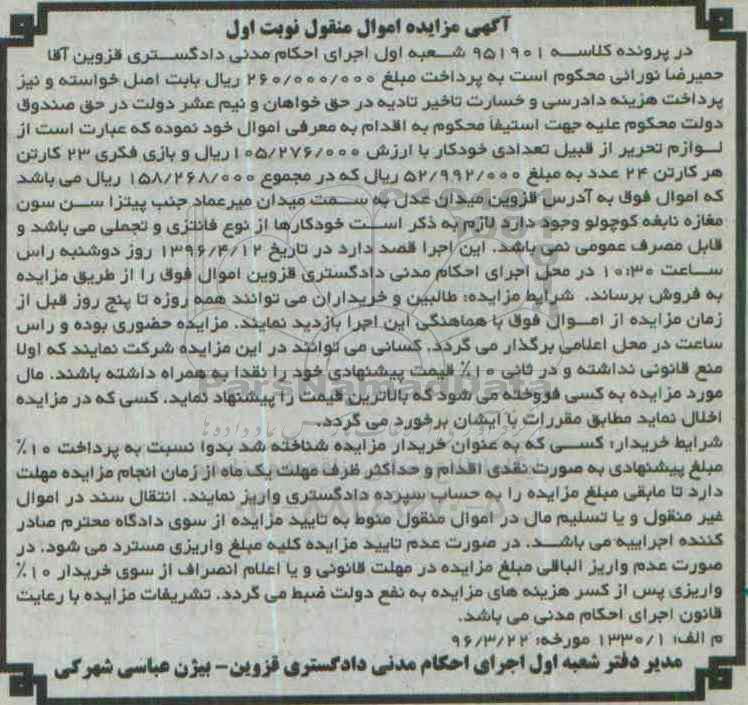 آگهی مزایده اموال منقول نوبت اول
در پرونده کلاسه ۹۵۱۹۰۱ شعبه اول اجرای احکام مدنی دادگستری قزوین آقا
حمیرضا نورائی محکوم است به پرداخت مبلغ ۲۶۰/۰۰۰/۰۰۰ ریال بابت اصل خواسته و نیز
پرداخت هزینه دادرسی و خسارت تاخیر تادیه در حق خواهان و نیم عشر دولت در حق صندوق
دولت محکوم علیه جهت استیفا محکوم به اقدام به معرفی اموال خود نموده که عبارت است از
لوازم تحریر از قبیل تعدادی خودکار با ارزش ۱۰۵/۲۷۶/۰۰۰ ریال و بازی فکری ۲۳ کارتن
هر کارتن ۲۴ عدد به مبلغ ۵۲/۹۹۲/۰۰۰ ریال که در مجموع ۱۵۸/۲۶۸/۰۰۰ ریال می باشد
که اموال فوق به آدرس قزوین میدان عدل به سمت میدان میرعماد جنب پیتزا سن سون
مغازه نابغه کوچولو وجود دارد لازم به ذکر است خودکارها از نوع فانتزی و تجملی می باشد و
قابل مصرف عمومی نمی باشد. این اجرا قصد دارد در تاریخ ۱۳۹۶/۴/۱۲ روز دوشنبه راس
ساعت ۱۰:۳۰ در محل اجرای احکام مدنی دادگستری قزوین اموال فوق را از طریق مزایده
به فروش برساند. شرایط مزایده: طالبین و خریداران می توانند همه روزه تا پنج روز قبل از
زمان مزایده از اموال فوق با هماهنگی این اجرا بازدید نمایند. مزایده حضوری بوده و راس
ساعت در محل اعلامی برگذار می گردد. کسانی می توانند در این مزایده شرکت نمایند که اولا
منع قانونی نداشته و در ثانی ۱۰٪ قیمت پیشنهادی خود را نقدا به همراه داشته باشند. مال
مورد مزایده به کسی فروخته می شود که بالاترین قیمت را پیشنهاد نماید. کسی که در مزایده
اخلال نماید مطابق مقررات با ایشان برخورد می گردد.
شرایط خریدار: کسی که به عنوان خریدار مزایده شناخته شد بدوا نسبت به پرداخت ۱۰٪
مبلغ پیشنهادی به صورت نقدی اقدام و حداکثر ظرف مهلت یک ماه از زمان انجام مزایده مهلت
دارد تا مابقی مبلغ مزایده را به حساب سپرده دادگستری واریز نمایند. انتقال سند در اموال
غیر منقول و یا تسلیم مال در اموال منقول منوط به تایید مزایده از سوی دادگاه محترم صادر
کننده اجراییه می باشد. در صورت عدم تایید مزایده کلیه مبلغ واریزی مسترد می شود. در
صورت عدم واریز الباقی مبلغ مزایده در مهلت قانونی و یا اعلام انصراف از سوی خریدار ۱۰٪
واریزی پس از کسر هزینه های مزایده به نفع دولت ضبط می گردد. تشریفات مزایده با رعایت
قانون اجرای احکام مدنی می باشد.
م الف: ۱۳۳۰/۱ مورخه: ۹۶/۳/۲۲
مدیر دفتر شعبه اول اجرای احکام مدنی دادگستری قزوین- بیژن عباسی شهرکی
ParsNamadData